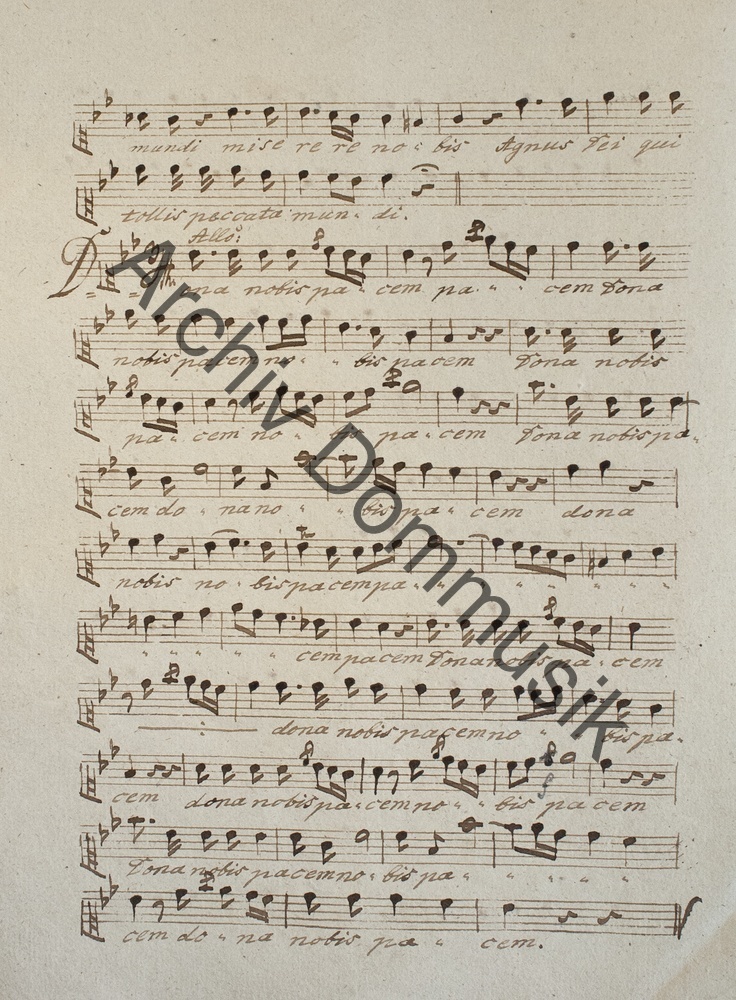 mundi mise re re no " bis Agnus Dei qui
tollis peccata mun " di.
Allo:
Dona nobis pa " cem pa " " " cem Dona
nobis pacem no " " bis pacem Dona nobis
pa " cem no " bis pa " cem Dona nobis pa "
cem do " na no " " bis pa " cem dona
nobis no " bis pacem pa " " " " " " " "
" " " " " " cem pacem Dona nobis pa " cem
dona nobis pacem no " bis pa "
cem dona nobis pa " cem no " " bis pa cem
Dona nobis pacem no " bis pa " " " " "
cem do " na nobis pa " cem.
Archiv Dommusik